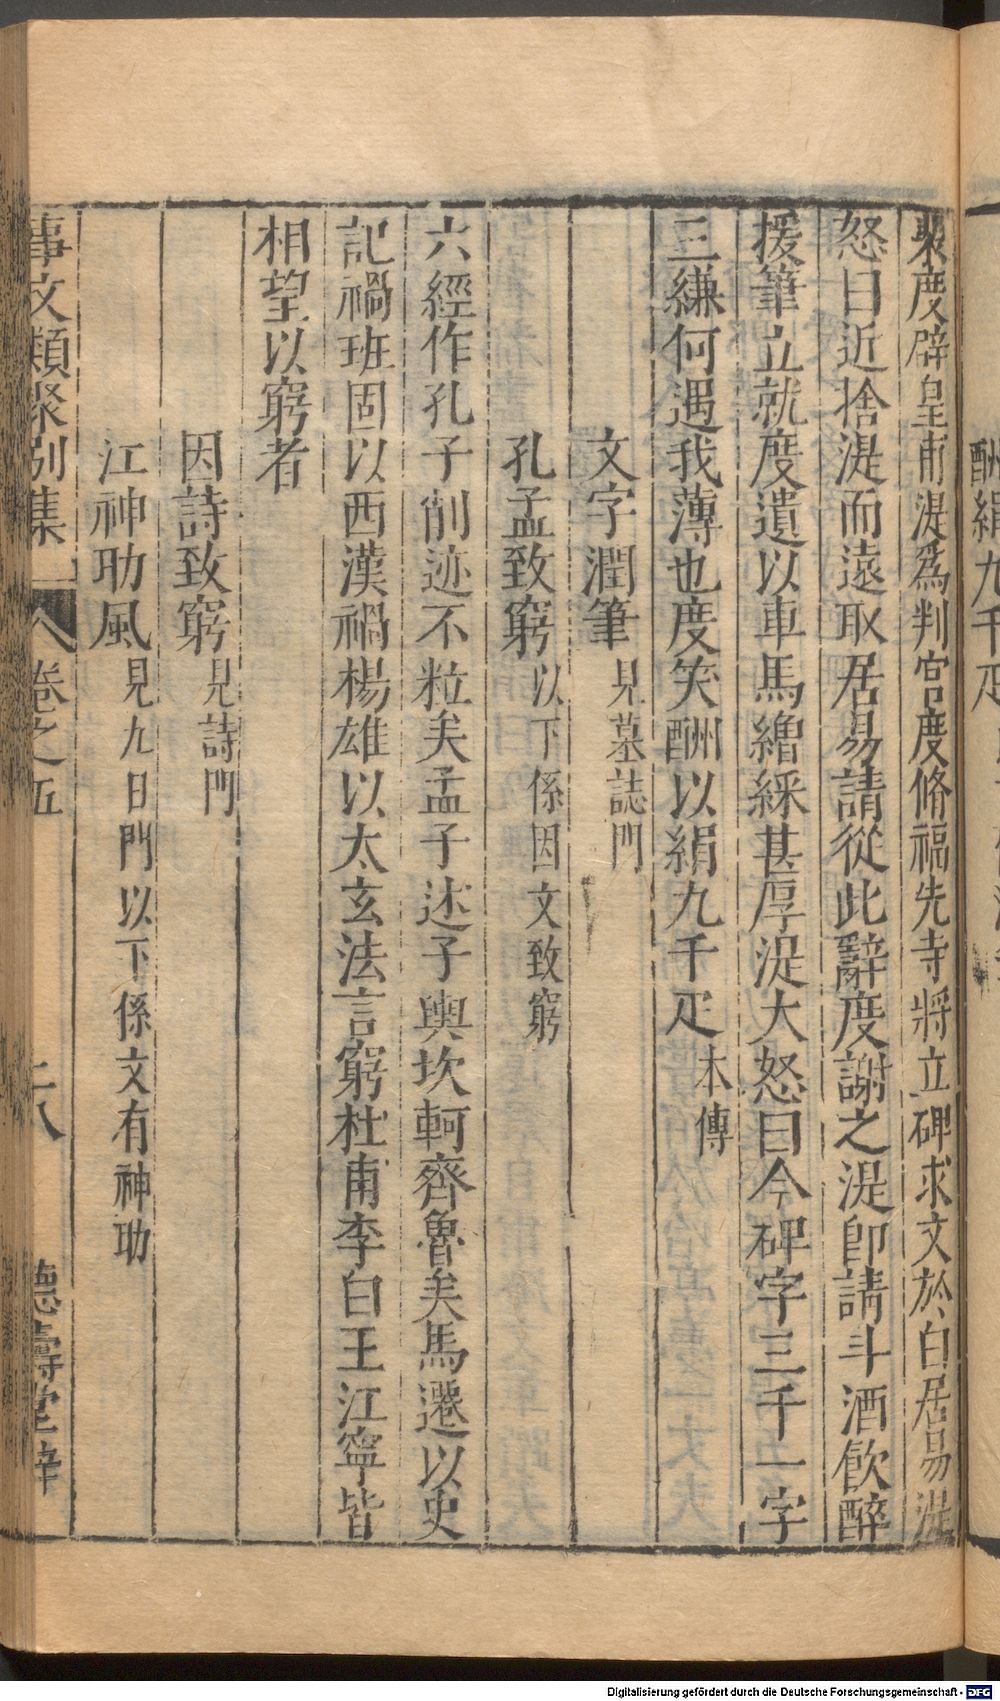 裴度辟皇甫湜爲判官度脩福先寺將立碑求文於白居易湜
怒曰近捨湜而遠取居易請從此辭度謝之湜即請斗酒飲醉
援筆立就度遺以車馬繒綵甚厚湜大怒曰今碑字三千一字
三縑何遇我薄也度笑酬以絹九千疋本傳
文字潤筆見墓誌門
孔孟致窮以下係因文致窮
六經作孔子削迹不粒矣孟子述子輿坎軻齊魯矣馬遷以史
記禍班固以西漢禍楊雄以太玄法言窮杜甫李白王江寧皆
相望以窮者
因詩致窮見詩門
江神助風見九日門以下係文有神助
事文類聚別集 卷之五 十八 德壽堂梓
酬絹九千疋
Digitalisierung gefördert durch die Deutsche Forschungsgemeinschaft - DFG